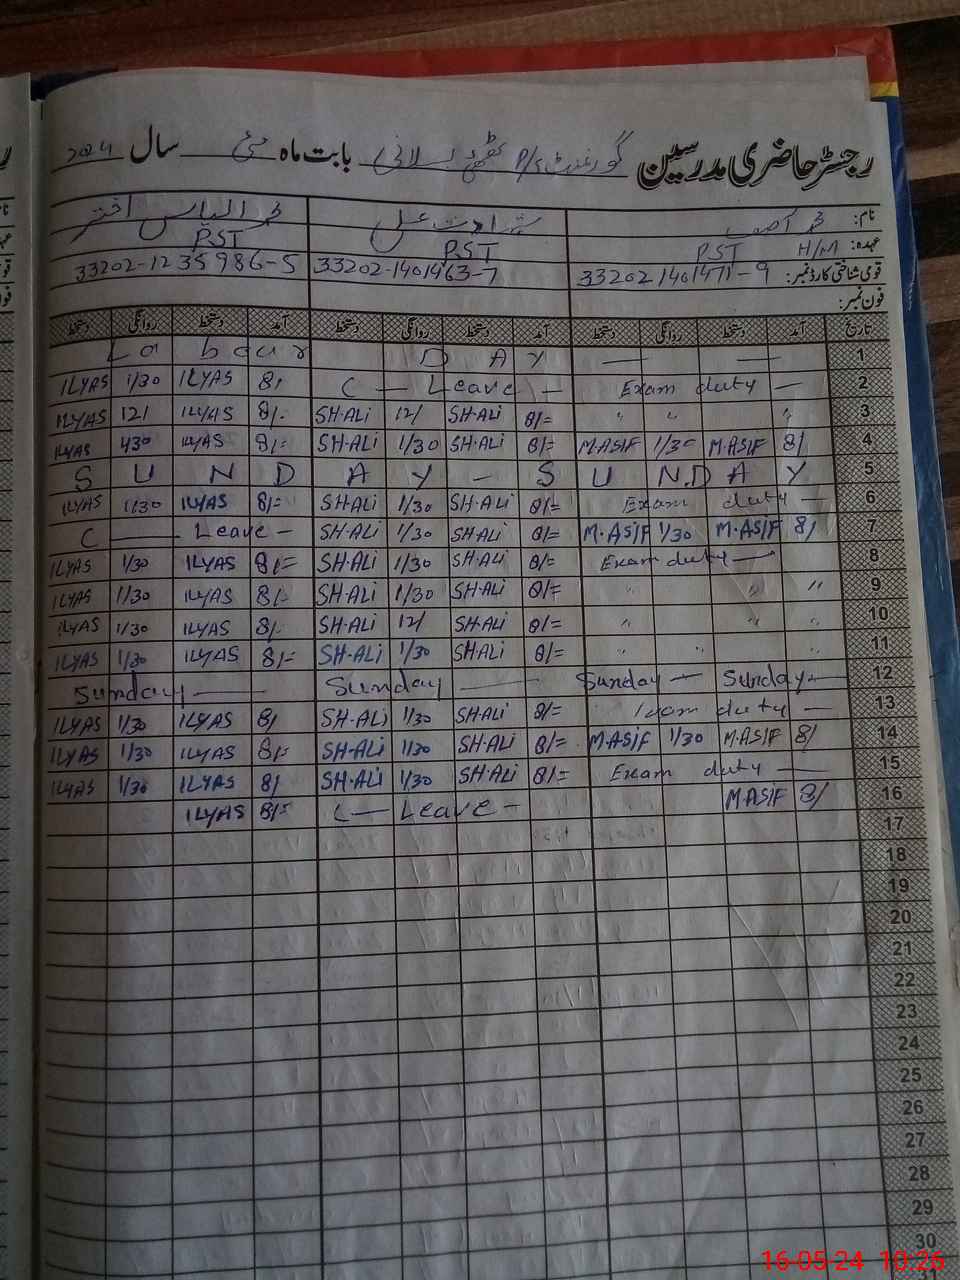 رجسٹر حاضری مدرسین گورنمنٹ P/S بابت ماہ مئی سال 2024
نام: محمد آصف شہادت علی محمد الیاس اختر
عہدہ: H/M PST PST PST
قومی شناختی کارڈ نمبر: 33202 1401471-9 33202-1401463-7 33202-1235986-5
فون نمبر:
تاریخ آمد دستخط روانگی دستخط آمد دستخط روانگی دستخط آمد دستخط روانگی دستخط
La bour D A Y — — 1
ILYAS 1/30 ILYAS 8/ C — Leave — Exam duty — 2
ILYAS 12/ ILYAS 8/- SH-ALi 12/ SH-ALi 8/= " " " 3
ILYAS 430 ILYAS 8/= SH-ALi 1/30 SH-ALi 8/= M-ASIF 1/30 M-ASIF 8/ 4
S U N D A Y - S U N.D A Y 5
ILYAS 1/30 ILYAS 8/= SH-ALi 1/30 SH-ALi 8/= Exam duty — 6
C — Leave — SH-ALi 1/30 SH-ALi 8/= M-ASIF 1/30 M-ASIF 8/ 7
ILYAS 1/30 ILYAS 8/= SH-ALi 1/30 SH-ALi 8/= Exam duty — 8
ILYAS 1/30 ILYAS 8/- SH-ALi 1/30 SH-ALi 8/= " " " 9
ILYAS 1/30 ILYAS 8/- SH-ALi 12/ SH-ALi 8/= " " " 10
ILYAS 1/30 ILYAS 8/= SH-ALi 1/30 SH-ALi 8/= " " " 11
Sunday — Sunday — Sunday — Sunday — 12
ILYAS 1/30 ILYAS 8/ SH-ALi 1/30 SH-ALi 8/= duty — 13
ILYAS 1/30 ILYAS 8/= SH-ALi 1/30 SH-ALi 8/= M-ASIF 1/30 M-ASIF 8/ 14
ILYAS 1/30 ILYAS 8/ SH-ALi 1/30 SH-ALi 8/= Exam duty — 15
ILYAS 8/= C — Leave - M-ASIF 8/ 16
17
18
19
20
21
22
23
24
25
26
27
28
29
30
16-05-24 10:26